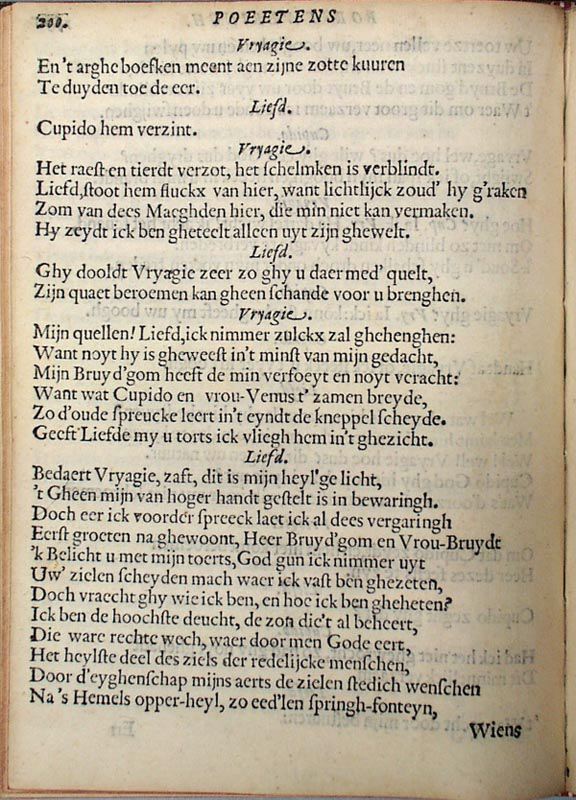 200. POEETENS
Vryagie.
En't arghe boefken meent aen zijne zotte kuuren
Te duyden toe de eer.
Liefd.
Cupido hem verzint.
Vryagie.
Het raest en tierdt verzot, het schelmken is verblindt.
Liefd, stoot hem fluckx van hier, want lichtlijck zoud' hy g'raken
Zom van dees Maeghden hier, die min niet kan vermaken.
Hy zeydt ick ben gheteelt alleen uyt zijn ghewelt.
Liefd.
Ghy dooldt Vryagie zeer zo ghy u daer med' quelt,
Zijn quaet beroemen kan gheen schande voor u brenghen.
Vryagie.
Mijn quellen! Liefd, ick nimmer zulckx zal ghehenghen:
Want noyt hy is gheweest in't minst van mijn gedacht,
Mijn Bruyd'gom heeft de min verfoeyt en noyt veracht:
Want wat Cupido en vrou-Venus t' zamen breyde,
Zo d'oude spreucke leert in't eyndt de kneppel scheyde.
Geeft Liefde my u torts ick vliegh hem in't ghezicht.
Liefd.
Bedaert Vryagie, zaft, dit is mijn heyl'ge licht,
't Gheen mijn van hoger handt gestelt is in bewaringh.
Doch eer ick voorder spreeck laet ick al dees vergaringh
Eerst groeten na ghewoont, Heer Bruyd'gom en Vrou-Bruydt
'k Belicht u met mijn toerts, God gun ick nimmer uyt
Uw' zielen scheyden mach waer ick vast ben ghezeten,
Doch vraecht ghy wie ick ben, en hoe ick ben gheheten?
Ick ben de hoochste deucht, de zon die't al beheert,
Die ware rechte wech, waer door men Gode eert,
Het heylste deel des ziels der redelijcke menschen,
Door d'eyghenschap mijns aerts de zielen stedich wenschen
Na 's Hemels opper-heyl, zo eed'len springh-fonteyn,
Wiens